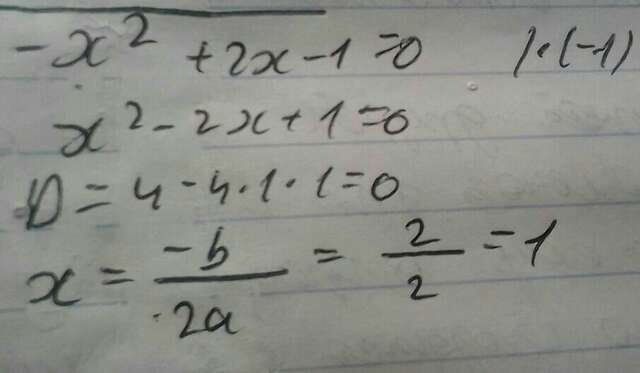 -x² + 2x - 1 = 0 /·(-1)
x² - 2x + 1 = 0
D = 4 - 4·1·1 = 0
x = -b/2a = 2/2 = 1